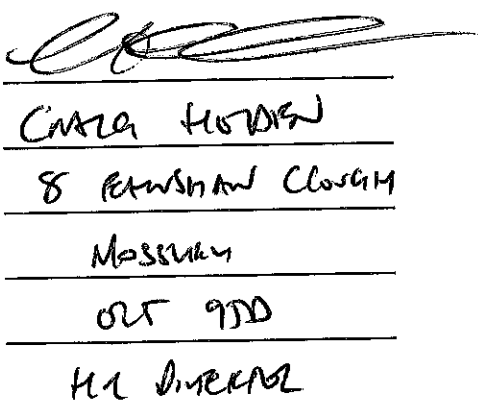 CRAIG HOLDEN
8 FERNSHAW CLOUGH
MOSSLEY
OL5 9DD
HR DIRECTOR